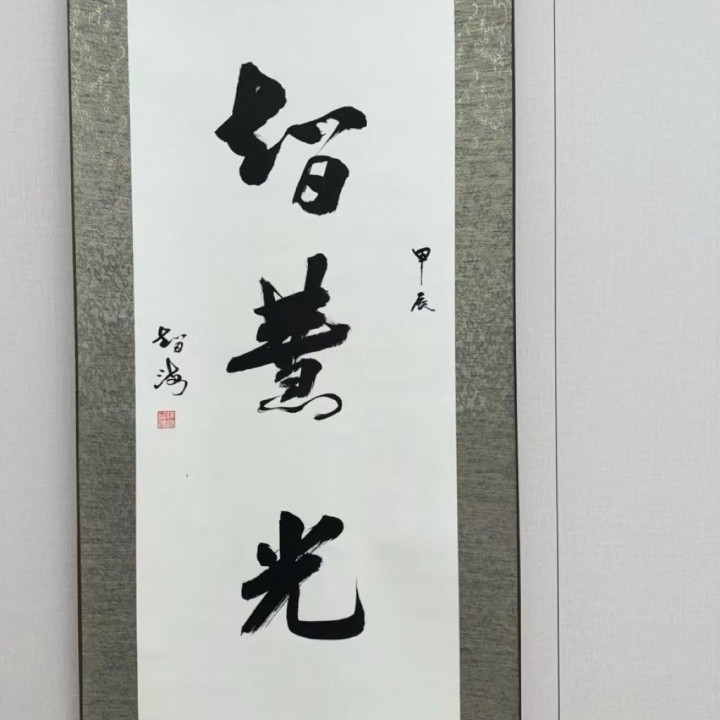 甲辰
智慧光
智海